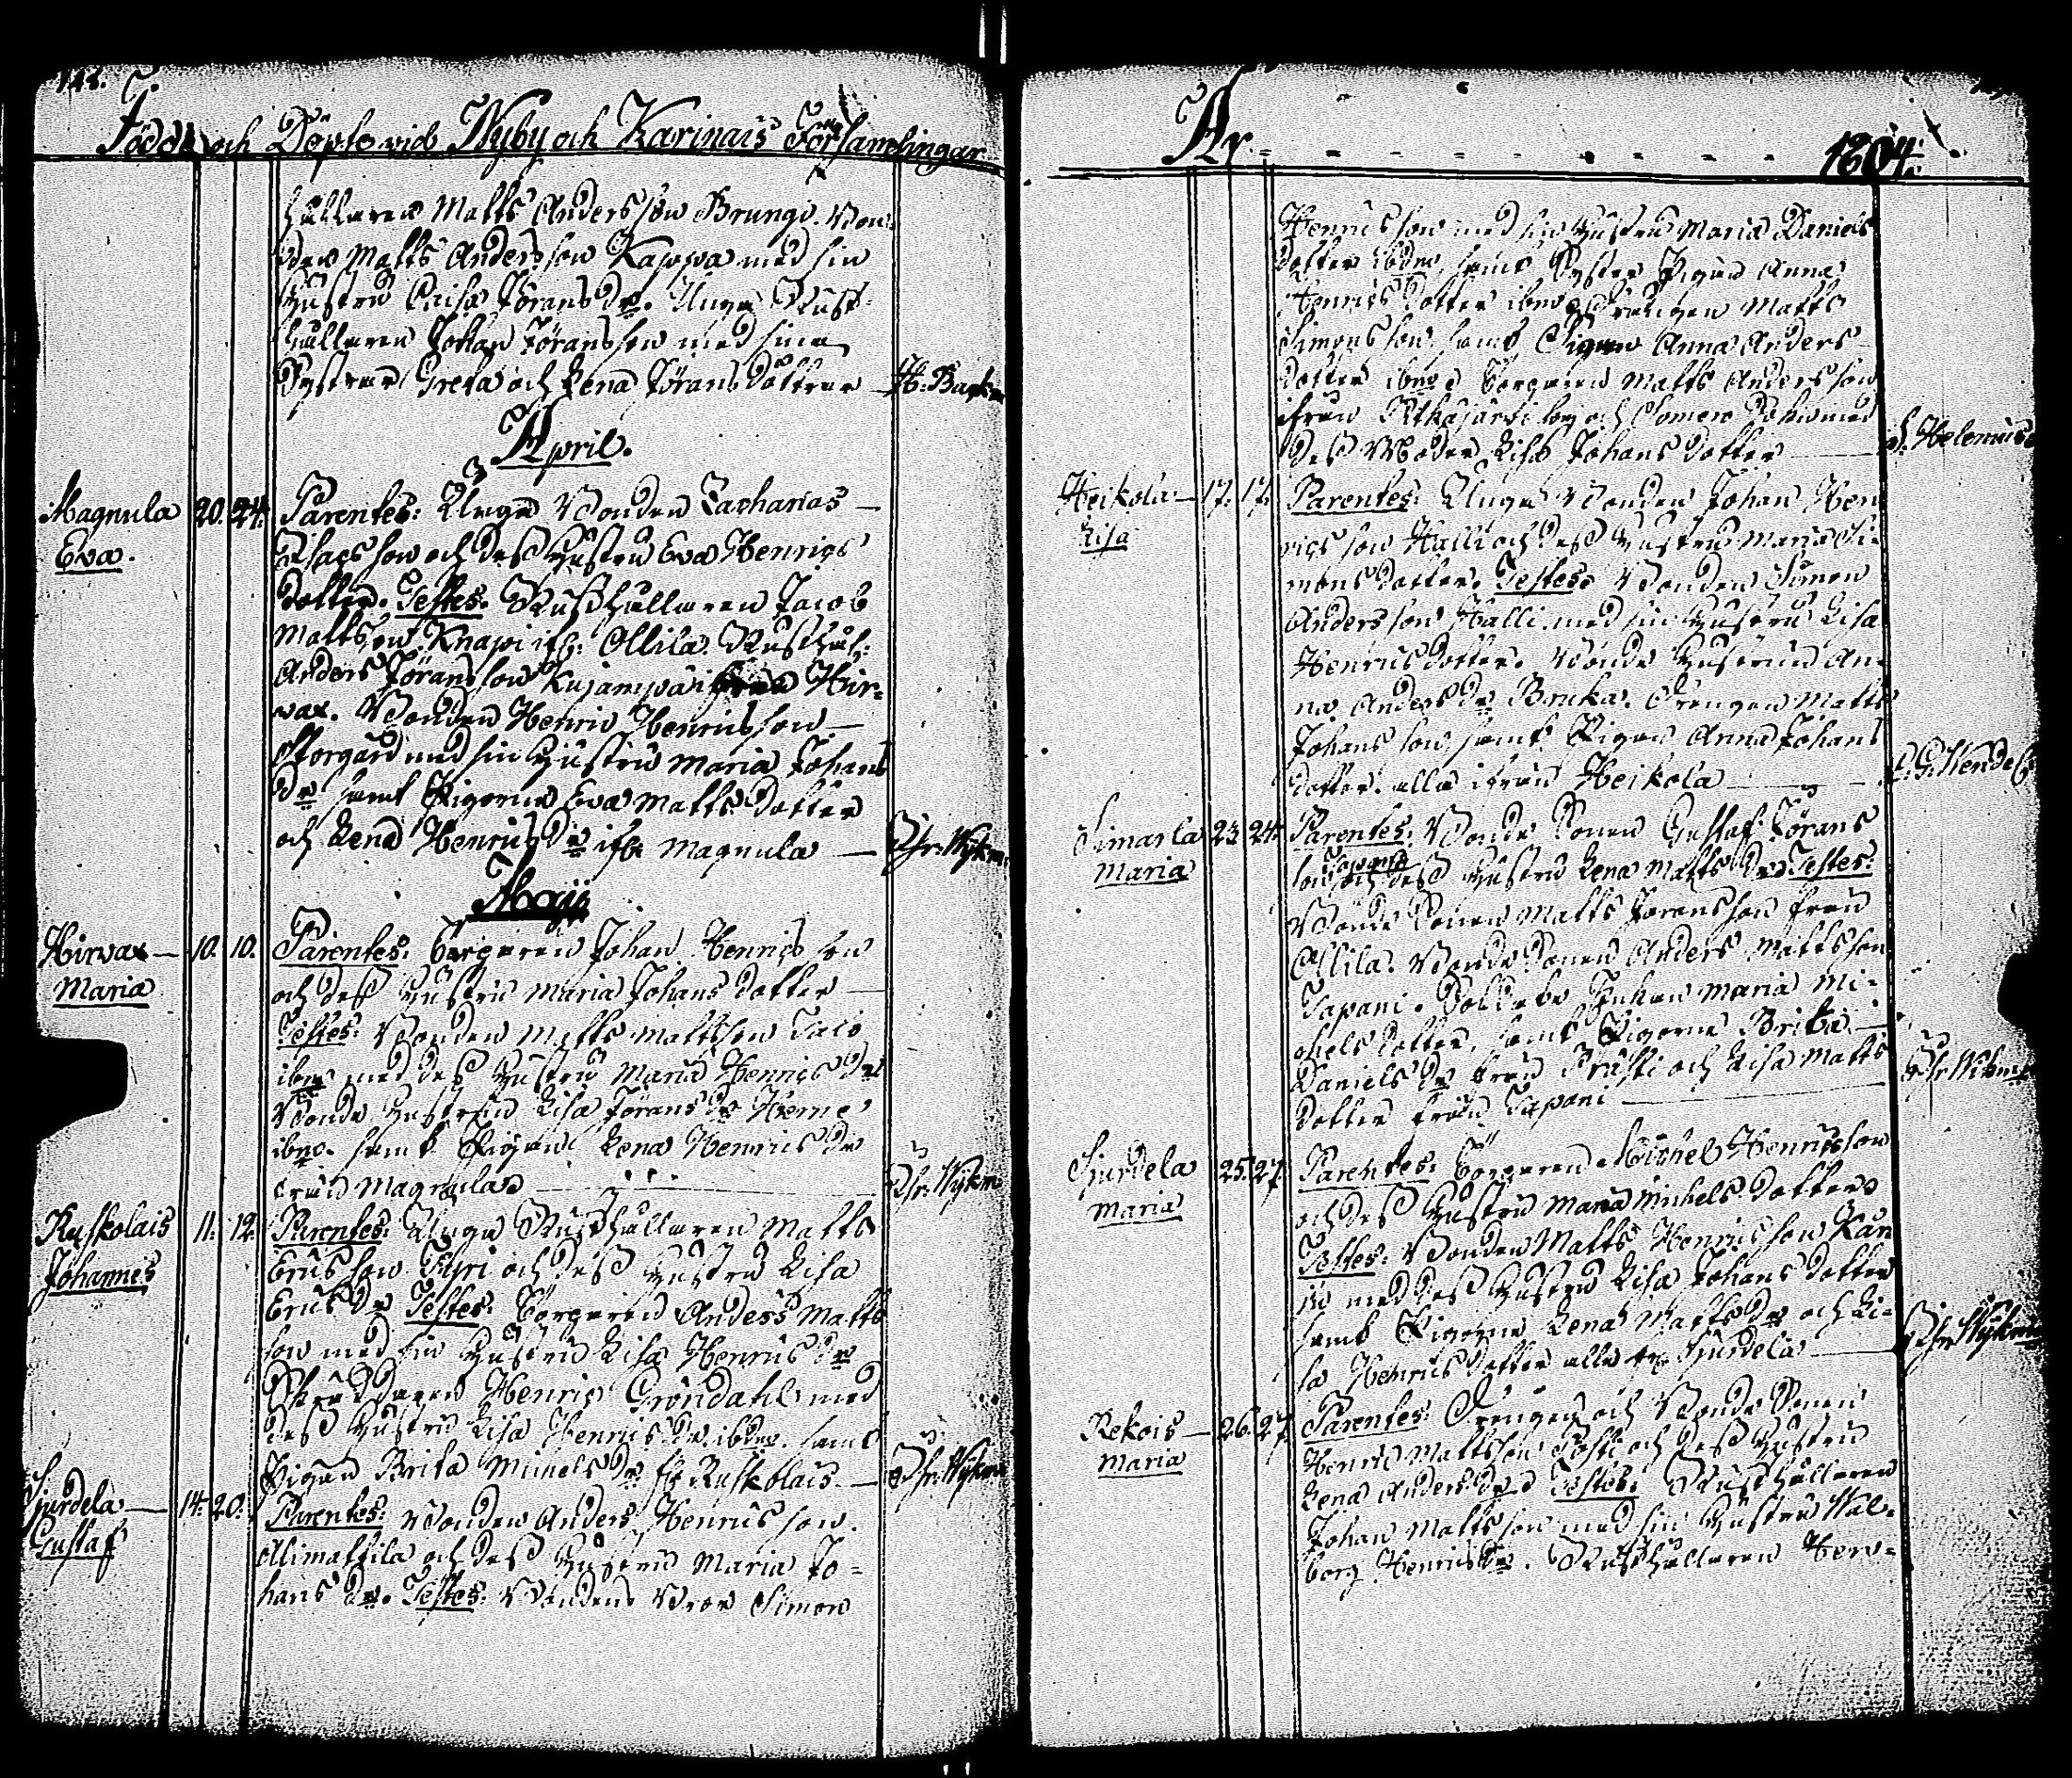 148.
Födde och Döpte vid Nyby och Karinais Församlingar
hållaren Matts Andersson Brungi. Bon-
den Matts Andersson Kappa med sin
Hustru Caisa Jörans dr. Unga Rust-
hållaren Johan Jöransson med sina
Systrar Greta och Lena Jörans döttrar — H: Backm
April.
Magnula 20. 24. Parentes: Unga Bonden Zacharias —
Eva. Isacsson och dess Hustru Eva Henrics
dotter. Testes: Rusthållaren Jacob
Mattson Knapi ifr: Ollila. Rusthål:
Anders Jöransson Kujanpäi från Hir-
wax. Bonden Henric Henricsson —
Storgård med sin Hustru Maria Johans
dr samt Pigorna Eva Matts dotter
och Lena Henrics dr ifr: Magnula — Ähr: Nykm:
Maji
Hirvax — 10. 10. Parentes: Torparen Johan Henrics son
Maria och dess Hustru Maria Johans dotter —
Testes: Bonden Matts Mattsson Talo
ibm med dess Hustru Maria Henrics dr
Bonde Hustrun Lisa Jörans dr Heme
ibm. samt Pigan Lena Henrics dr
från Magnula — Ähr: Nykm
Kuskolais 11. 12. Parentes: Unga Rusthållaren Matts
Johannes Ericsson Tyri och dess Hustru Lisa
Erics dr Testes: Torparen Anders Matts
son med sin Hustru Lisa Henrics dr
Skräddaren Henric Gröndahl med
dess Hustru Lisa Henrics dr. ibdm. samt
Pigan Brita Michels dr fr Kuskolais. — Ähr: Nykm
Sjurdela — 14. 20. Parentes: Bonden Anders Henrics son
Gustaf Alimattila och dess Hustru Maria Jo-
hans dr. Testes: Bonden Simon
År 1804.
Henricsson med sin Hustru Maria Daniels
dotter ibdm, samt Syster Pigan Anna
Henrics dotter ibm Drängen Matts
Simonsson samt Pigan Anna Anders
dotter ibm Torparen Matts Andersson
ifrån och
dess Moder Lisa Johans dotter — Helenius
Heikola — 17. 17. Parentes: Unga Bonden Johan Hen
Lisa rics son Halli och dess Hustru Maria Si-
mons dotter. Testes: Bonden Simon
Andersson Halli med sin Hustru Lisa
Henrics dotter. Bonde Hustrun An-
na Anders dr Bruka. Drengen Matts
Johansson samt Pigan Anna Johans
dotter. alla ifrån Heikola — Wendel
Simarla 23. 24. Parentes: Bonde Sonen Gustaf Jörans
Maria son Tapani och dess Hustru Lena Matts dr Testes:
Bonde Sonen Matts Jöransson från
Ollila. Bonde Sonen Anders Mattsson
Tapani. Soldate Enkan Maria Mi-
chels dotter, samt Pigorna Brita —
Daniels dr från Prusti och Lisa Matts
dotter från Tapani — Ähr: Nykm:
Sjurdela 25. 27. Parentes: Torparen Michel Henricsson
Maria och dess Hustru Maria Michels dotter
Testes: Bonden Matts Henricsson Kar
in med dess Hustru Lisa Johans dotter
samt Pigorna Lena Matts dr och Li-
sa Henrics dotter alla fr Sjurdela — Ähr: Nykm
Rekois — 26. 27. Parentes: Drengen och Bonde Sonen
Maria Henric Mattsson Posti och dess Hustru
Lena Anders dr Testes: Rusthållaren
Johan Mattsson med sin Hustru Wal-
borg Henrics dr. Rusthållaren Hen-